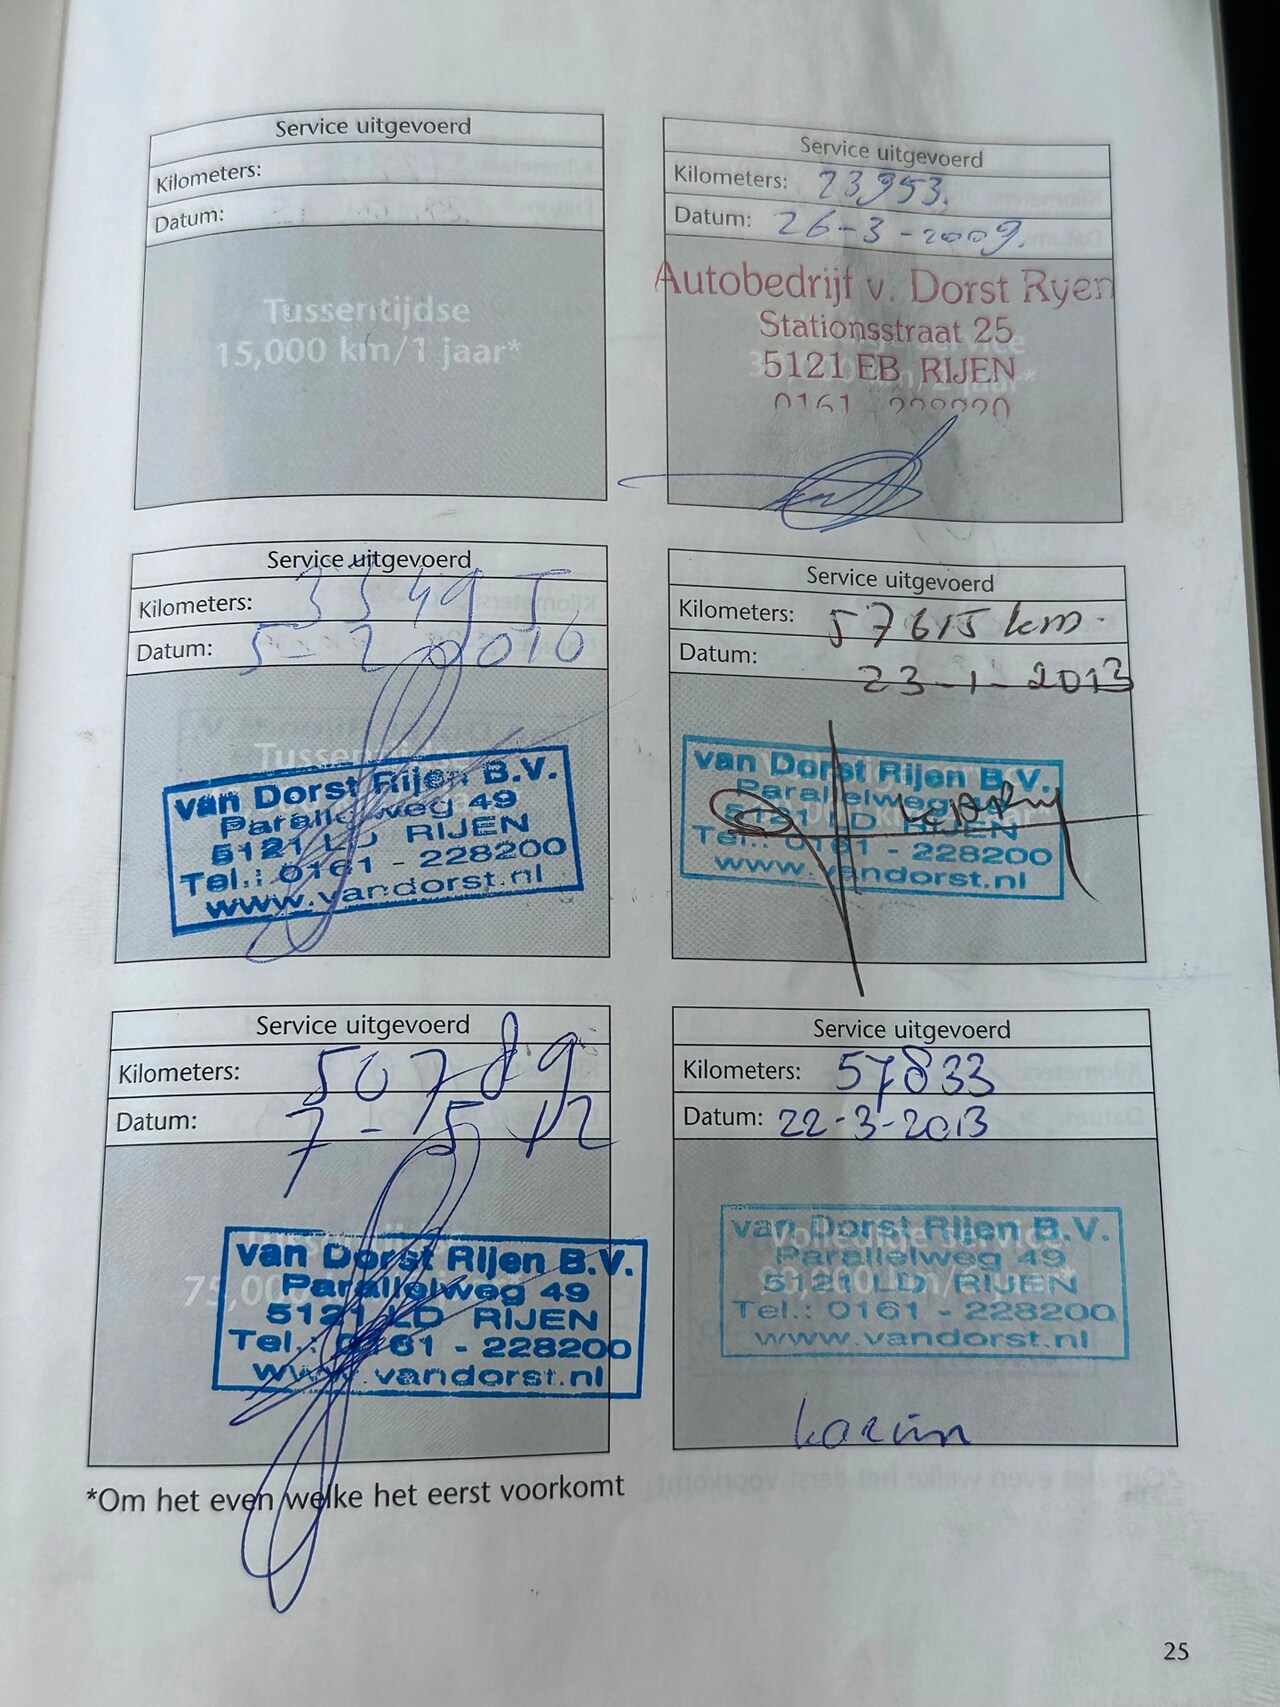 Service uitgevoerd
Kilometers:
Datum:
Tussentijdse
15,000 km/1 jaar*
Service uitgevoerd
Kilometers: 23953.
Datum: 26-3-2009.
Autobedrijf v. Dorst Ryen
Stationsstraat 25
5121 EB RIJEN
0161
Service uitgevoerd
Kilometers: 33495
Datum: 5-2 2010
Tussentijdse
van Dorst Rijen B.V.
Parallelweg 49
5121 LD RIJEN
Tel.: 0161 - 228200
www.vandorst.nl
Service uitgevoerd
Kilometers: 57615 km.
Datum: 23-1-2013
van Dorst Rijen B.V.
Parallelweg
5121 LD RIJEN
Tel.: 0161 - 228200
www.vandorst.nl
Service uitgevoerd
Kilometers: 50789
Datum: 7-5 12
75,000
van Dorst Rijen B.V.
Parallelweg 49
5121 LD RIJEN
Tel.: 0161 - 228200
www.vandorst.nl
Service uitgevoerd
Kilometers: 57833
Datum: 22-3-2013
Volledige service
90,000 km/
van Dorst Rijen B.V.
Parallelweg 49
5121 LD RIJEN
Tel.: 0161 - 228200
www.vandorst.nl
karim
*Om het even welke het eerst voorkomt
25